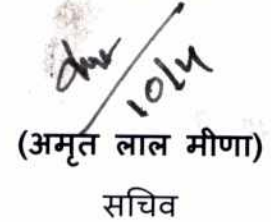 10/4
(अमृत लाल मीणा)
सचिव